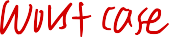 Worst case